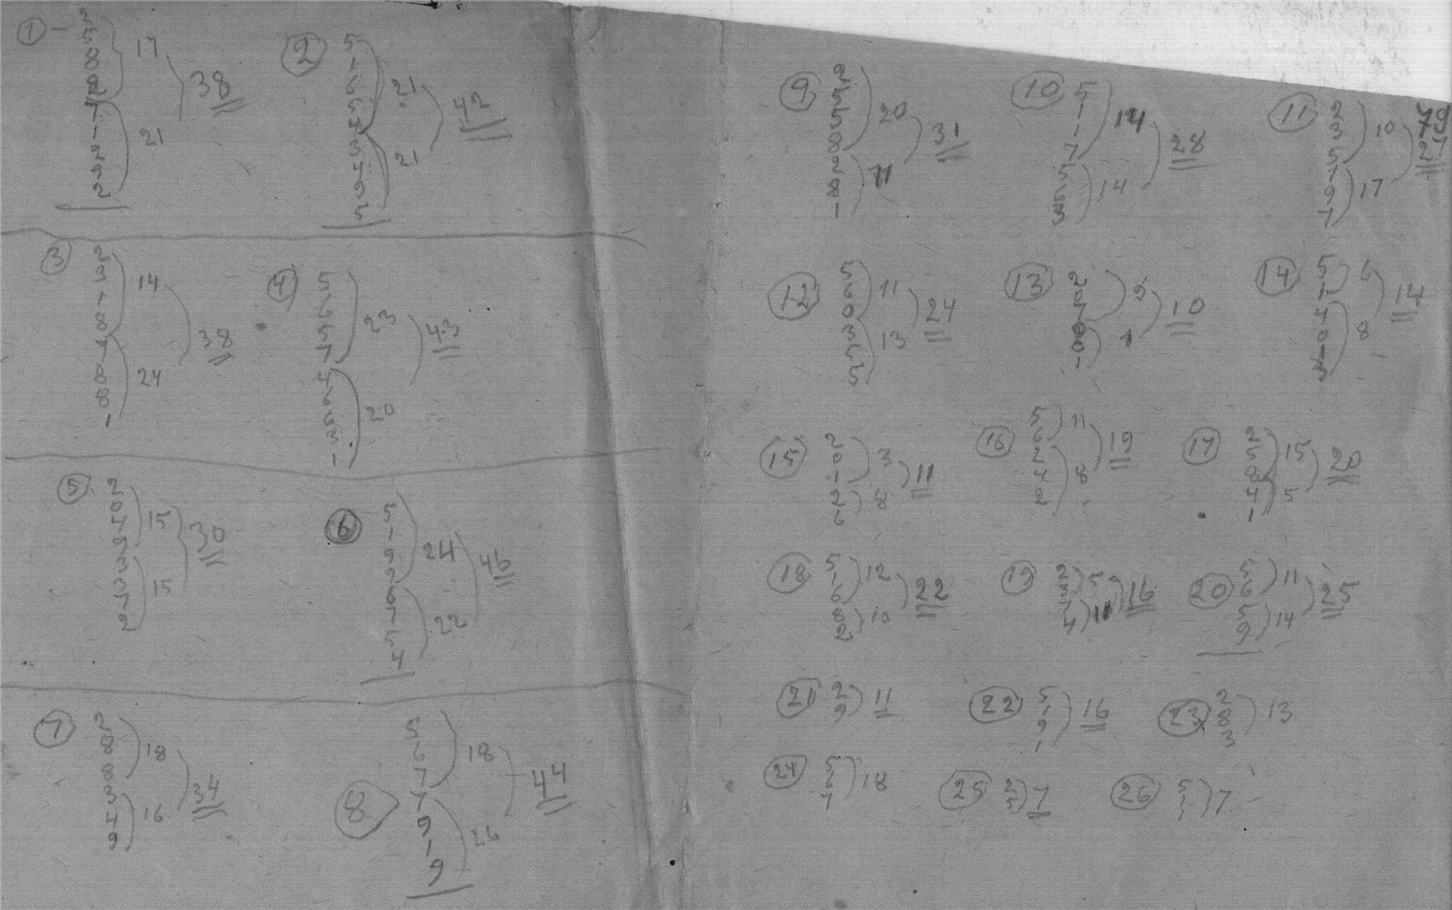 1 -
2
5
8
2
4
1
9
9
2
17
21
38
2
5
1
6
5
4
3
4
9
2
21
21
42
3
2
3
1
8
7
8
8
1
14
24
38
4
5
6
5
7
4
6
6
3
1
23
20
43
5
2
0
4
9
3
3
7
2
15
15
30
6
5
1
9
9
6
7
5
4
24
22
46
7
2
8
8
3
4
9
18
16
34
8
5
6
7
7
9
1
9
18
26
44
9
2
5
5
8
2
8
1
20
11
31
10
5
1
1
7
5
6
3
14
14
28
11
2
3
5
1
9
7
10
17
79
27
12
5
6
0
3
5
5
11
13
24
13
2
0
7
0
0
1
9
1
10
14
5
1
4
0
1
3
6
8
14
15
2
0
1
2
6
3
8
11
16
5
6
2
4
2
11
8
19
17
2
5
8
4
1
15
5
20
18
5
1
6
8
2
12
10
22
19
2
3
7
4
5
11
16
20
5
6
5
9
11
14
25
21
2
9
11
22
5
1
9
1
16
23
2
8
3
13
24
5
6
7
18
25
2
5
7
26
5
1
1
7